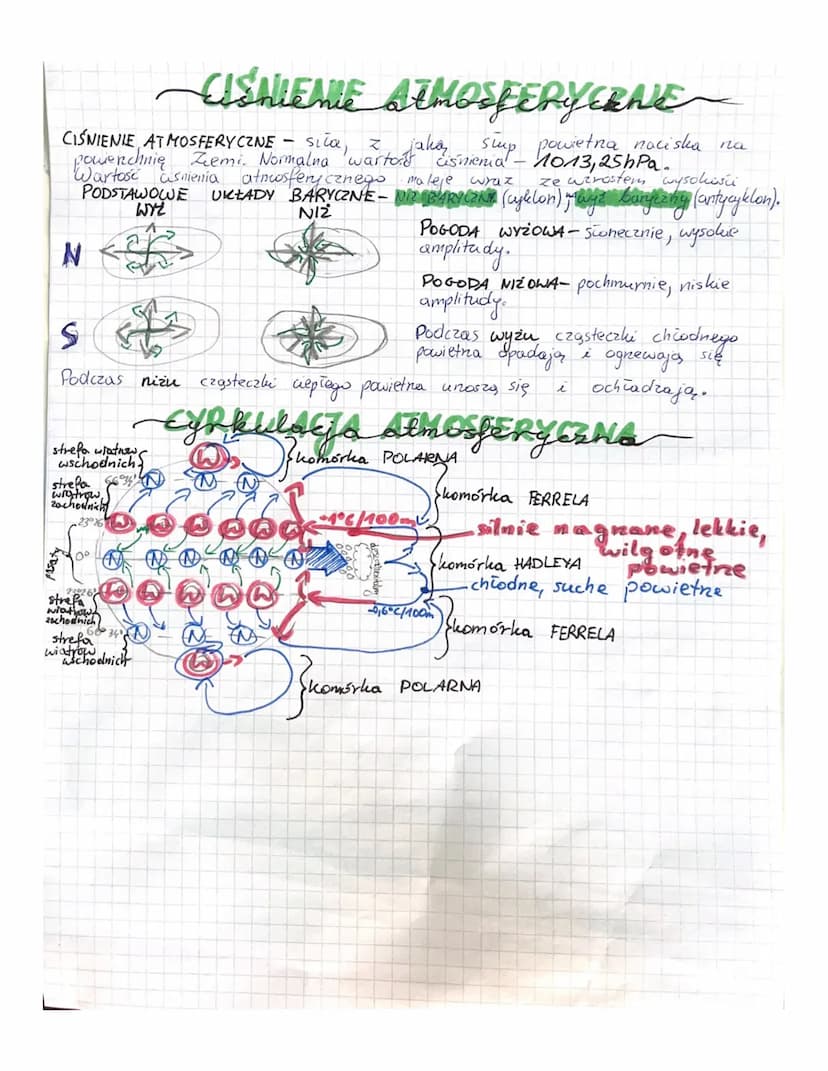 CIŚNIENIE ATMOSFERYCZNE
ciśnienie atmosferyczne
CIŚNIENIE ATMOSFERYCZNE – siła, z jaką słup powietrza naciska na
powierzchnię Ziemi. Normalna wartość ciśnienia – 1013,25hPa.
Wartość ciśnienia atmosferycznego maleje wraz ze wzrostem wysokości
PODSTAWOWE UKŁADY BARYCZNE – NIŻ BARYCZNY (cyklon), wyż baryczny (antycyklon).
WYŻ NIŻ
N
S
POGODA WYŻOWA – słonecznie, wysokie
amplitudy.
POGODA NIŻOWA – pochmurnie, niskie
amplitudy.
Podczas wyżu cząsteczki chłodnego
powietrza opadają i ogrzewają się
Podczas niżu cząsteczki ciepłego powietrza unoszą się i ochładzają.
CYRKULACJA ATMOSFERYCZNA
cyrkulacja atmosferyczna
strefa wiatrów
wschodnich
W
komórka POLARNA
N N N
strefa
wiatrów
zachodnich
komórka FERRELA
23°26'
W W W W W W
-1°C/100m
silnie nagrzane, lekkie,
wilgotne
powietrze
pasaty
0°
N N N N N N
komórka HADLEYA
chłodne, suche powietrze
W W W W W
-0,6°C/100m
strefa
wiatrów
zachodnich
N N N
komórka FERRELA
strefa
wiatrów
wschodnich
W
komórka POLARNA